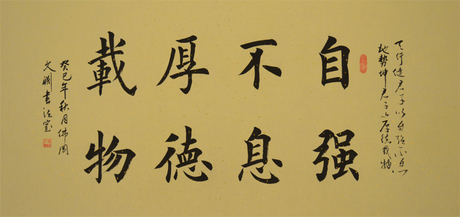 天行健君子以自强不息
地勢坤君子以厚德載物
自强
不息
厚德
載物
癸巳年秋月
文書